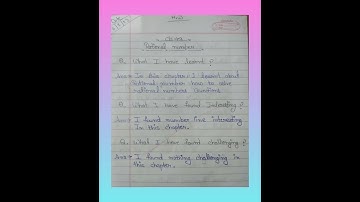 Rational number
Q. What I have learnt ?
Ans→ In this chapter I learnt about
rational number how to solve
rational numbers
Q. What I have found Interesting ?
Ans→ I found number line interesting
In this chapter.
Q. What I have found challenging ?
Ans→ I found nothing challenging in
this chapter.